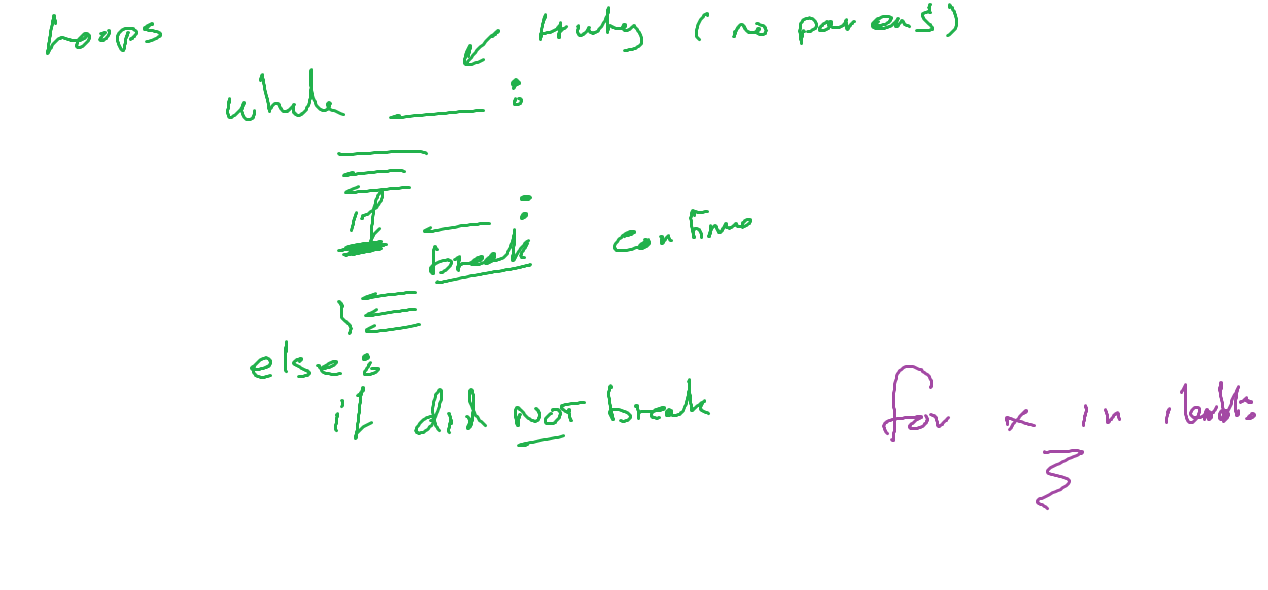 Loops
truthy (no parens)
while ___ :
if ___ :
break continue
else :
if did NOT break
for x in iterable: